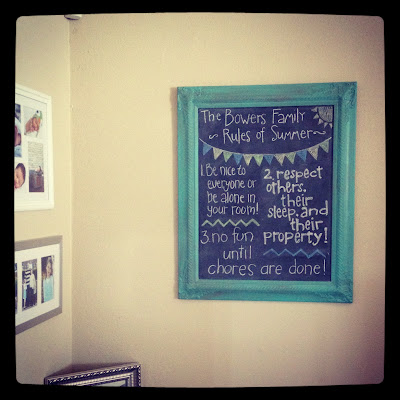 The Bowers Family
~ Rules of Summer ~
1. Be nice to
everyone or
be alone in
your room!
2. respect
others,
their
sleep, and
their
property!
3. no fun
until
chores are done!